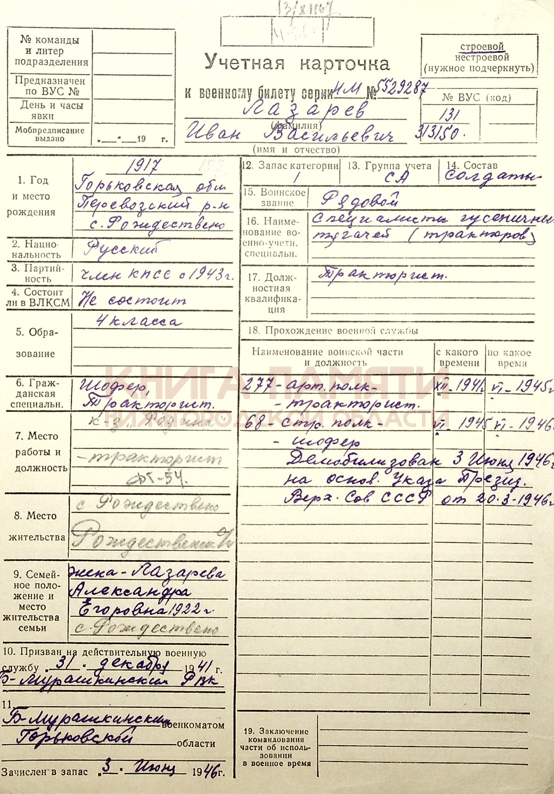 13/XII 67
№ команды
и литер
подразделения
Предназначен
по ВУС №
День и часы
явки
Мобпредписание
выдано "___"___19 г.
строевой
нестроевой
(нужное подчеркнуть)
Учетная карточка
к военному билету серии НМ № 5529287
Лазарев
(фамилия)
Иван Васильевич
(имя и отчество)
№ ВУС (код)
131
313150.
1. Год
и место
рождения
1917
Горьковская обл
Перевозский р-н
с. Рождествено
2. Нацио-
нальность
Русский
3. Партий-
ность
член КПСС с 1943 г.
4. Состоит
ли в ВЛКСМ
Не состоит
5. Обра-
зование
4 класса
6. Граж-
данская
специальн.
Шофер,
Тракторист.
7. Место
работы и
должность
к-з Родина
-тракторист
ДТ-54.
8. Место
жительства
с Рождествено
9. Семей-
ное поло-
жение и
место
жительства
семьи
жена - Лазарева
Александра
Егоровна 1922 г.
с. Рождествено
10. Призван на действительную военную
службу 31. декабря 1941 г.
Б-Мурашкинский РВК
11.
Б-Мурашкинским военкоматом
Горьковской области
Зачислен в запас 3. Июня 1946 г.
12. Запас категории
1
13. Группа учета
СА
14. Состав
Солдаты
15. Воинское
звание
Рядовой
16. Наиме-
нование во-
енно-учетн.
специальн.
Специалисты гусеничных
тягачей (тракторов)
17. Долж-
ностная
квалифика-
ция
Тракторист.
18. Прохождение военной службы
Наименование воинской части
и должность
с какого
времени
по какое
время
277 - арт. полк - XII - 1941 VI - 1945 г
- тракторист.
68 - стр. полк - VI - 1945 VI - 1946 г
- шофер
Демобилизован 3 Июня 1946 г
на основ. Указа Презид.
Верх. Сов СССР от 20.3-1946 г
19. Заключение
командования
части об исполь-
зовании
в военное время
КНИГА ПАМЯТИ